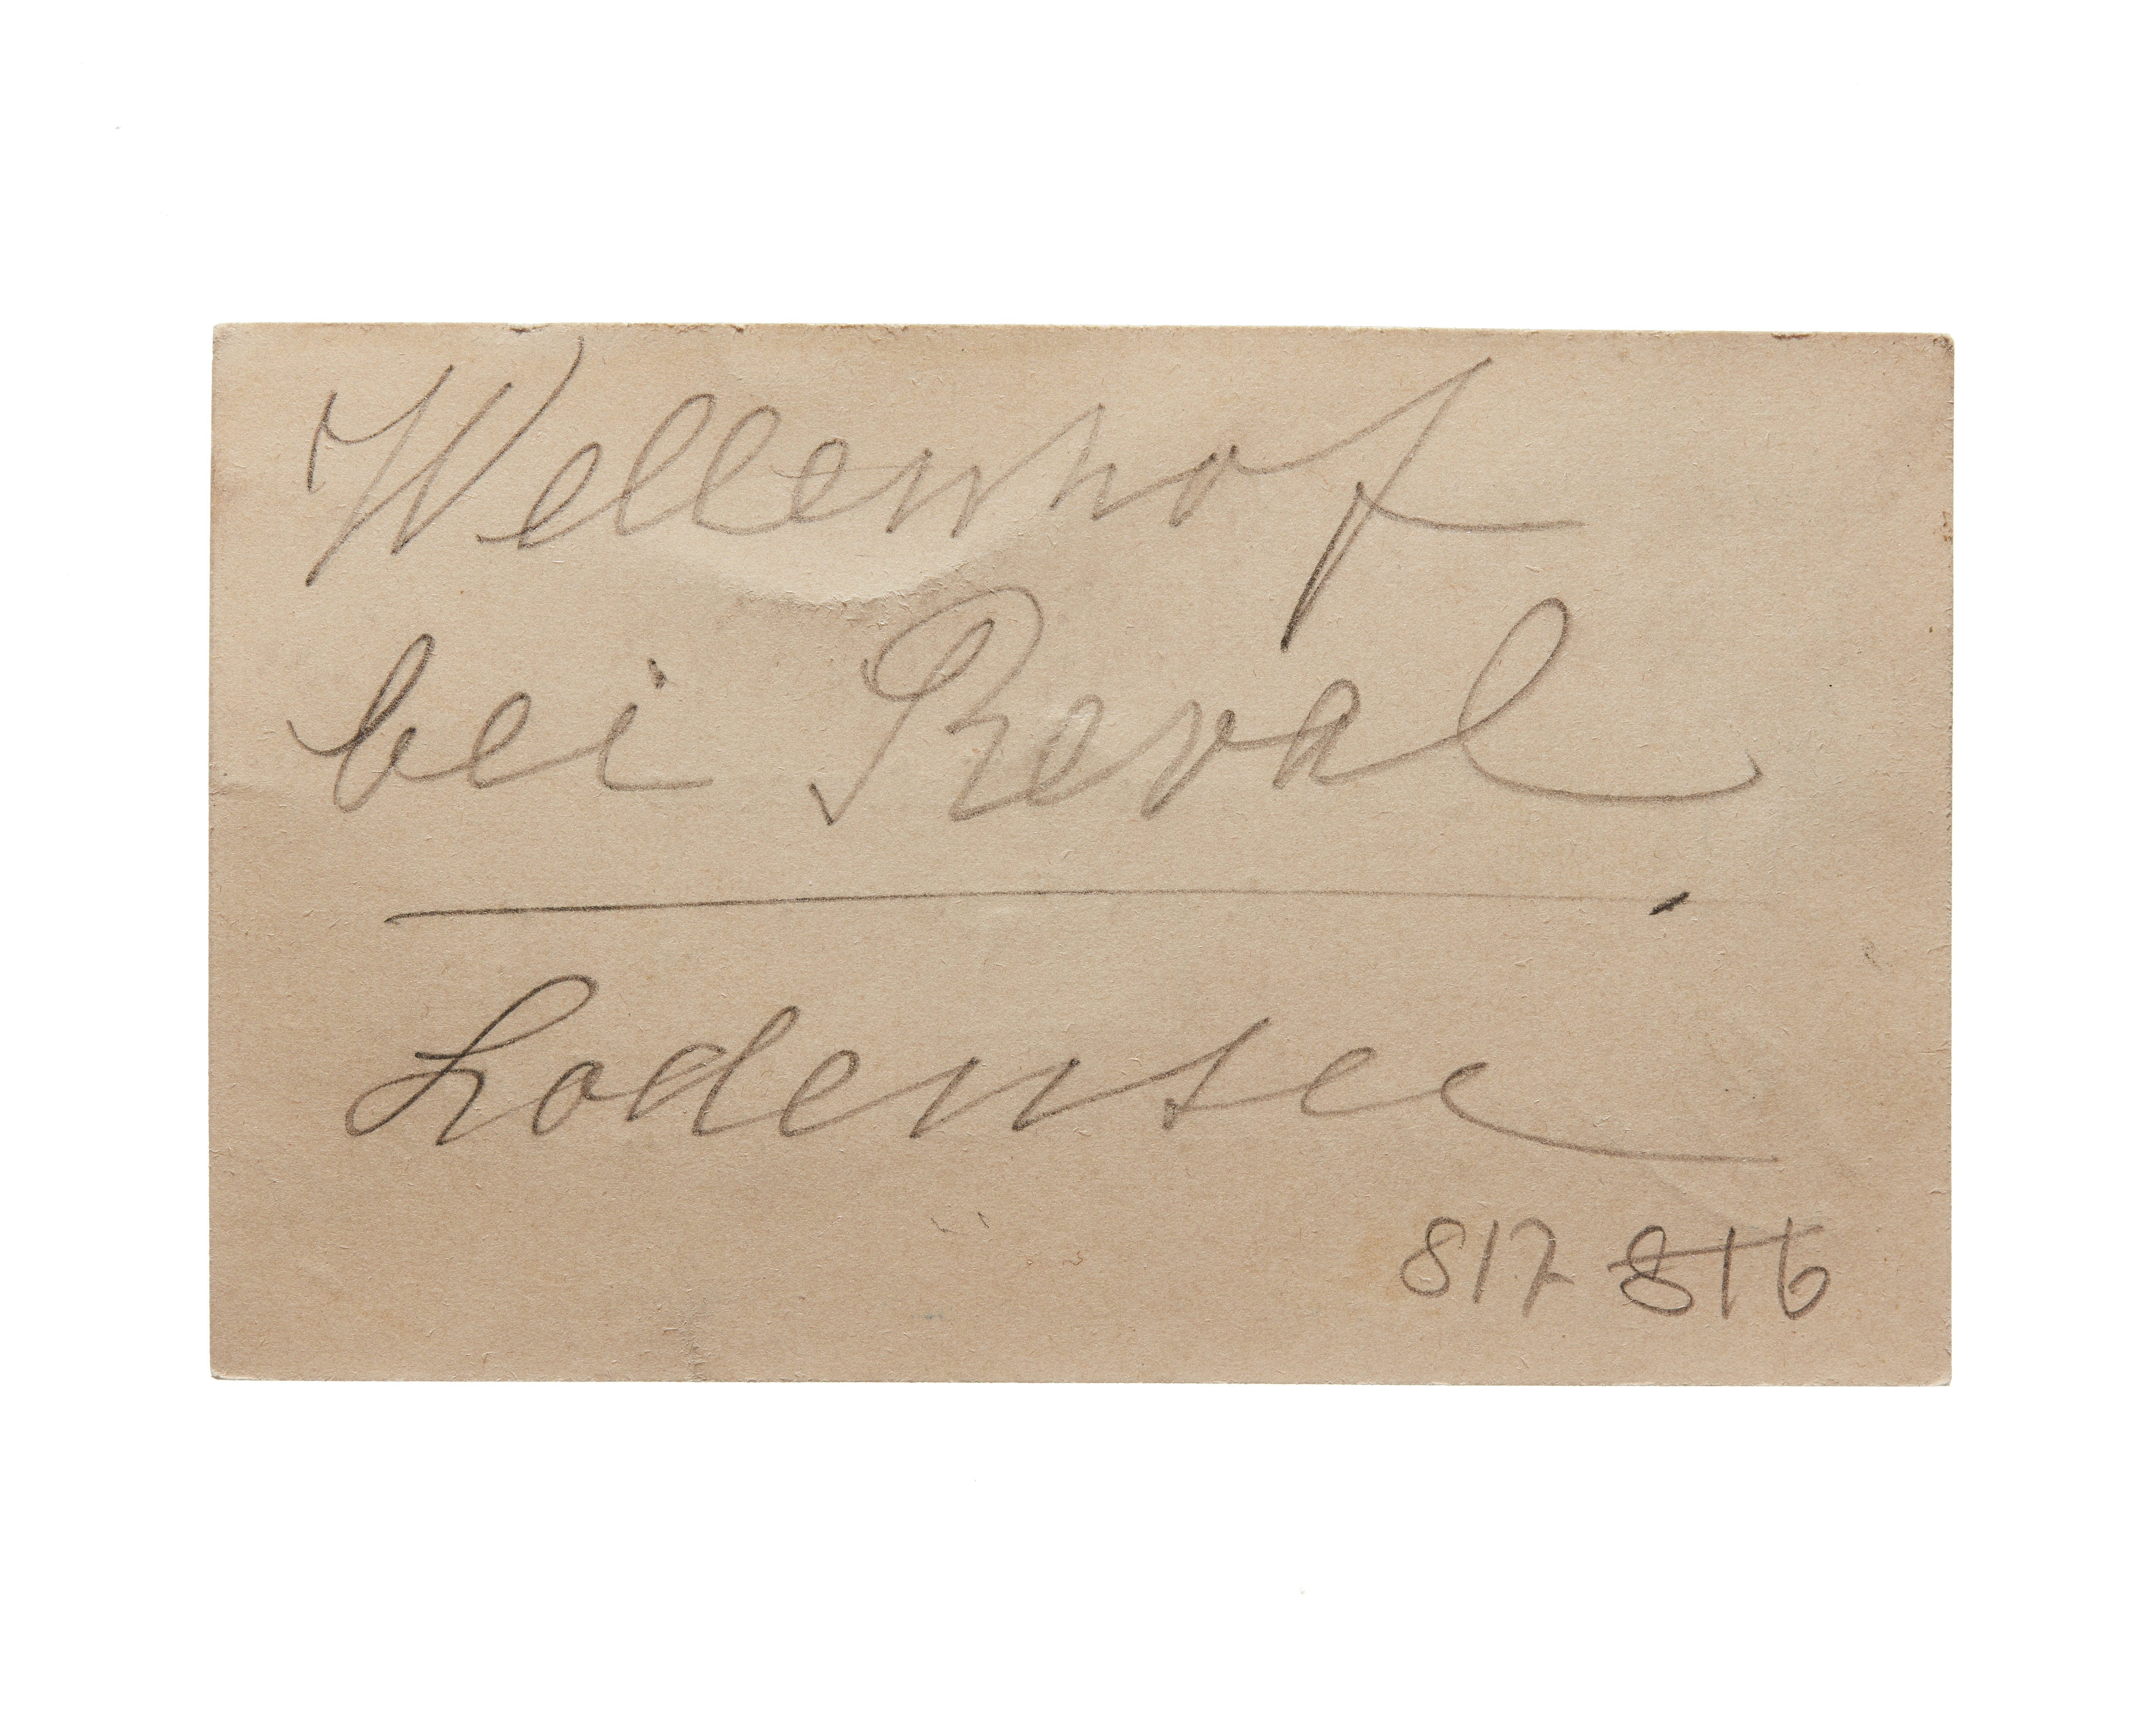 Wellenhof
bei Reval
Lodensee
817 816